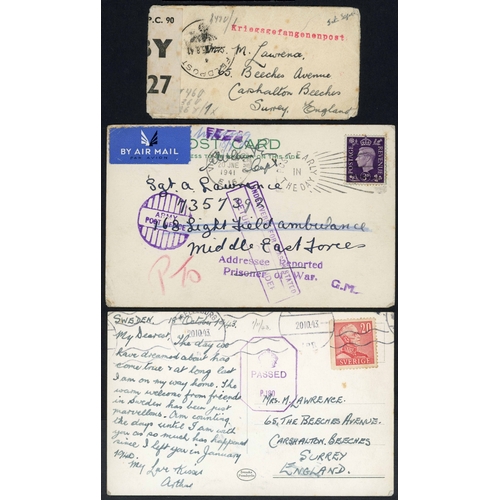 P.C. 90
BY
27
Kriegsgefangenenpost.
Mrs. M. Lawrence
65, Beeches Avenue
Carshalton Beeches
Surrey England
FELDPOST
BY AIR MAIL
PAR AVION
POST CARD
JNE
1941
EARLY
IN
THE DAY
POSTAGE
REVENUE
3D
Sgt A Lawrence
168 Light Field ambulance
Middle East Forces
ARMY
POST OFFICE
UNDELIVERED FOR REASON STATED
RETURN TO SENDER
Addressee Reported
Prisoner of War.
G.M.
P.T.O
SWEDEN. 19th October 1943.
My Dearest. The day we
have dreamed about has
come true & at long last
I am on my way home. The
warm welcome from friends
in Sweden has been just
marvellous. Am counting
the days until I am with
you as so much has happened
since I left you in January
1940.
My Love Kisses
Arthur
20.10.43
20.10.43
PASSED
20
SVERIGE
MRS. M. LAWRENCE.
65, THE BEECHES AVENUE.
CARSHALTON BEECHES
SURREY
ENGLAND.